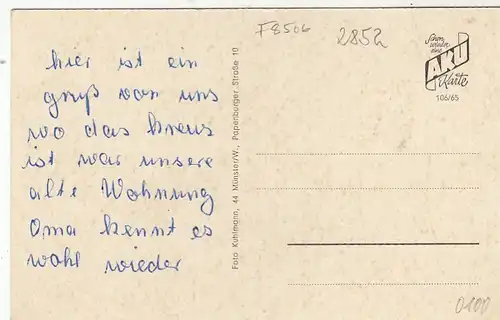 hier ist ein
gruß von uns
wo das kreus
ist war unsere
alte Wohnung
Oma kennt es
wohl wieder
Foto Kuhlmann, 44 Münster/W., Papenburger Straße 10
F8506
2852
Schon
wieder
eine
AKU
Karte
106/65
0100